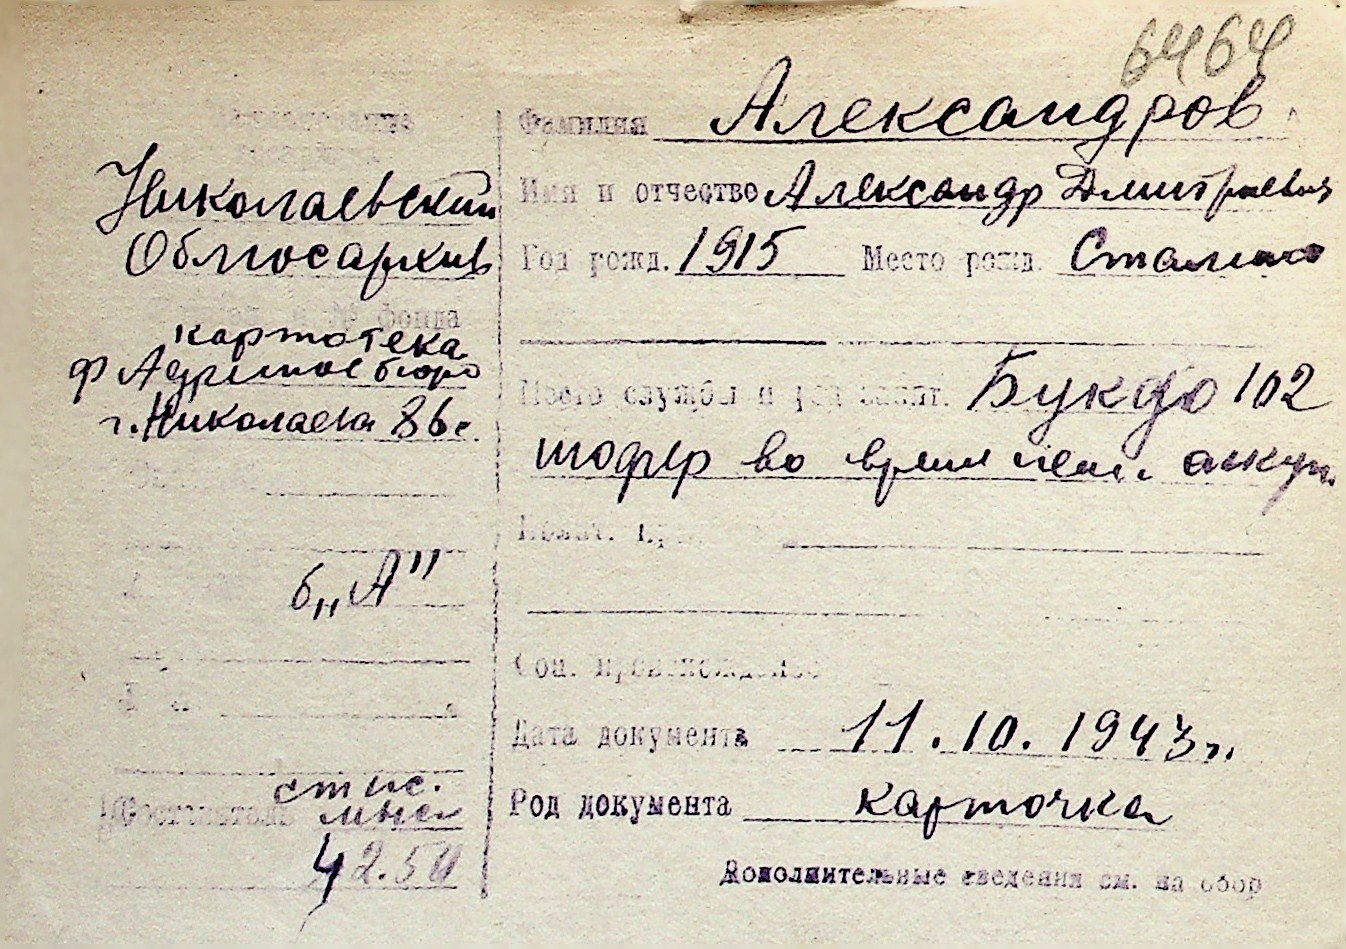 6464
Фамилия Александров
Имя и отчество Александр Дмитриевич
Год рожд. 1915 Место рожд. Сталино
Место службы и род занят. Букдо 102
шофер во время нем. оккуп.
Соц. происхождение
Дата документа 11.10.1943 г.
Род документа карточка
Дополнительные сведения см. на обор
Николаевский
Облгосархив
№ фонда
картотека
ф Адресное бюро
г. Николаева 86 с.
б„А”
Составитель